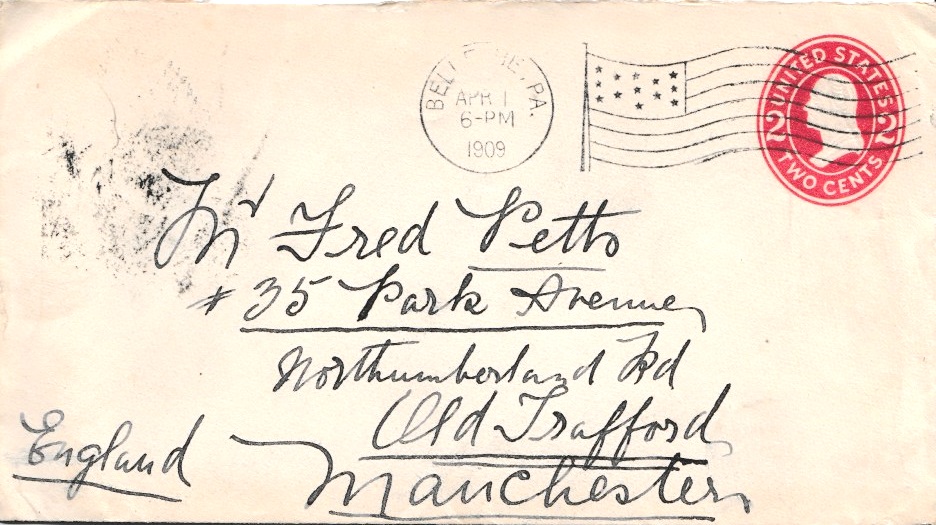 APR 1
6-PM
1909
PA.
UNITED STATES
2 2
TWO CENTS
Mr Fred Petts
# 35 Park Avenue
Northumberland Rd
Old Trafford
Manchester
England